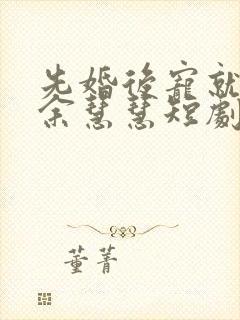 先婚後寵就
余慧慧短劇
董菁